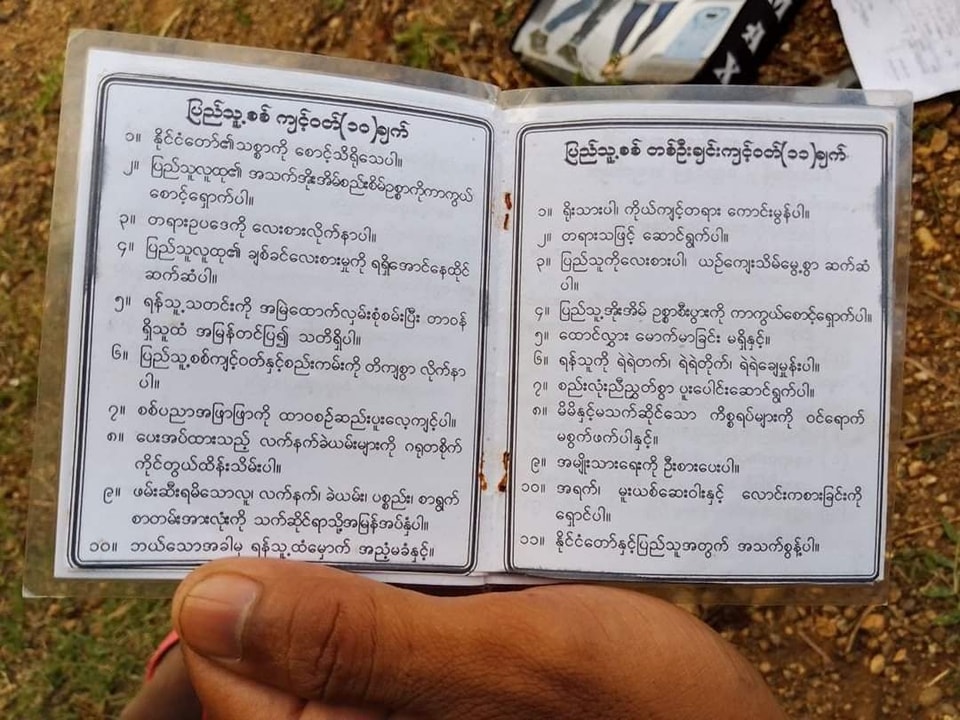 ပြည်သူ့စစ် ကျင့်ဝတ်(၁၀)ချက်
၁။ နိုင်ငံတော်၏သစ္စာကို စောင့်သိရိုသေပါ။
၂။ ပြည်သူလူထု၏ အသက်အိုးအိမ်စည်းစိမ်ဥစ္စာကိုကာကွယ်
စောင့်ရှောက်ပါ။
၃။ တရားဥပဒေကို လေးစားလိုက်နာပါ။
၄။ ပြည်သူလူထု၏ ချစ်ခင်လေးစားမှုကို ရရှိအောင်နေထိုင်
ဆက်ဆံပါ။
၅။ ရန်သူ့သတင်းကို အမြဲထောက်လှမ်းစုံစမ်းပြီး တာဝန်
ရှိသူထံ အမြန်တင်ပြ၍ သတိရှိပါ။
၆။ ပြည်သူ့စစ်ကျင့်ဝတ်နှင့်စည်းကမ်းကို တိကျစွာ လိုက်နာ
ပါ။
၇။ စစ်ပညာအဖြာဖြာကို ထာဝစဉ်ဆည်းပူးလေ့ကျင့်ပါ။
၈။ ပေးအပ်ထားသည့် လက်နက်ခဲယမ်းများကို ဂရုတစိုက်
ကိုင်တွယ်ထိန်းသိမ်းပါ။
၉။ ဖမ်းဆီးရမိသောလူ၊ လက်နက်၊ ခဲယမ်း၊ ပစ္စည်း၊ စာရွက်
စာတမ်းအားလုံးကို သက်ဆိုင်ရာသို့အမြန်အပ်နှံပါ။
၁၀။ ဘယ်သောအခါမှ ရန်သူ့ထံမှောက် အညံ့မခံနှင့်။
ပြည်သူ့စစ် တစ်ဦးချင်းကျင့်ဝတ်(၁၁)ချက်
၁။ ရိုးသားပါ၊ ကိုယ်ကျင့်တရား ကောင်းမွန်ပါ။
၂။ တရားသဖြင့် ဆောင်ရွက်ပါ။
၃။ ပြည်သူကိုလေးစားပါ၊ ယဉ်ကျေးသိမ်မွေ့စွာ ဆက်ဆံ
ပါ။
၄။ ပြည်သူ့အိုးအိမ် ဥစ္စာစီးပွားကို ကာကွယ်စောင့်ရှောက်ပါ။
၅။ ထောင်လွှား မောက်မာခြင်း မရှိနှင့်။
၆။ ရန်သူကို ရဲရဲတက်၊ ရဲရဲတိုက်၊ ရဲရဲချေမှုန်းပါ။
၇။ စည်းလုံးညီညွတ်စွာ ပူးပေါင်းဆောင်ရွက်ပါ။
၈။ မိမိနှင့်မသက်ဆိုင်သော ကိစ္စရပ်များကို ဝင်ရောက်
မစွက်ဖက်ပါနှင့်။
၉။ အမျိုးသားရေးကို ဦးစားပေးပါ။
၁၀။ အရက်၊ မူးယစ်ဆေးဝါးနှင့် လောင်းကစားခြင်းကို
ရှောင်ပါ။
၁၁။ နိုင်ငံတော်နှင့်ပြည်သူအတွက် အသက်စွန့်ပါ။